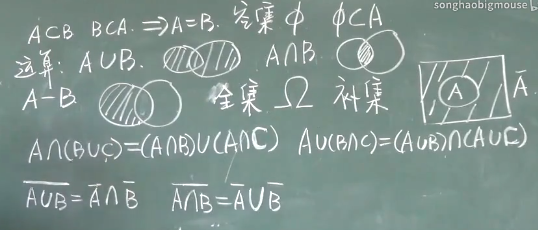 songhaobigmouse
A⊂B B⊂A. ⇒A=B. 空集 ϕ ϕ⊂A
运算: A∪B. A∩B.
A-B 全集 Ω 补集 A Ā
A∩(B∪C)=(A∩B)∪(A∩C) A∪(B∩C)=(A∪B)∩(A∪C)
\overline{A∪B}=Ā∩B̄ \overline{A∩B}=Ā∪B̄